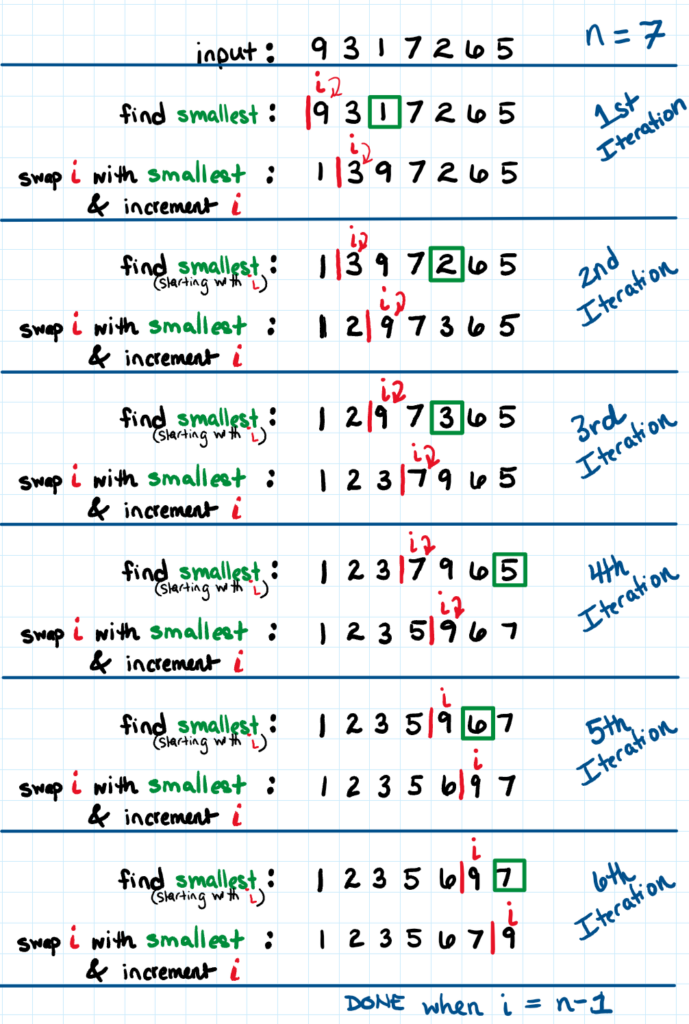 n = 7
input : 9 3 1 7 2 6 5
i
find smallest : |9 3 1 7 2 6 5
1st
Iteration
i
swap i with smallest : 1|3 9 7 2 6 5
& increment i
i
find smallest : 1|3 9 7 2 6 5
(starting with i)
2nd
Iteration
i
swap i with smallest : 1 2|9 7 3 6 5
& increment i
i
find smallest : 1 2|9 7 3 6 5
(starting with i)
3rd
Iteration
i
swap i with smallest : 1 2 3|7 9 6 5
& increment i
i
find smallest : 1 2 3|7 9 6 5
(starting with i)
4th
Iteration
i
swap i with smallest : 1 2 3 5|9 6 7
& increment i
i
find smallest : 1 2 3 5|9 6 7
(starting with i)
5th
Iteration
i
swap i with smallest : 1 2 3 5 6|9 7
& increment i
i
find smallest : 1 2 3 5 6|9 7
(starting with i)
6th
Iteration
i
swap i with smallest : 1 2 3 5 6 7|9
& increment i
DONE when i = n-1